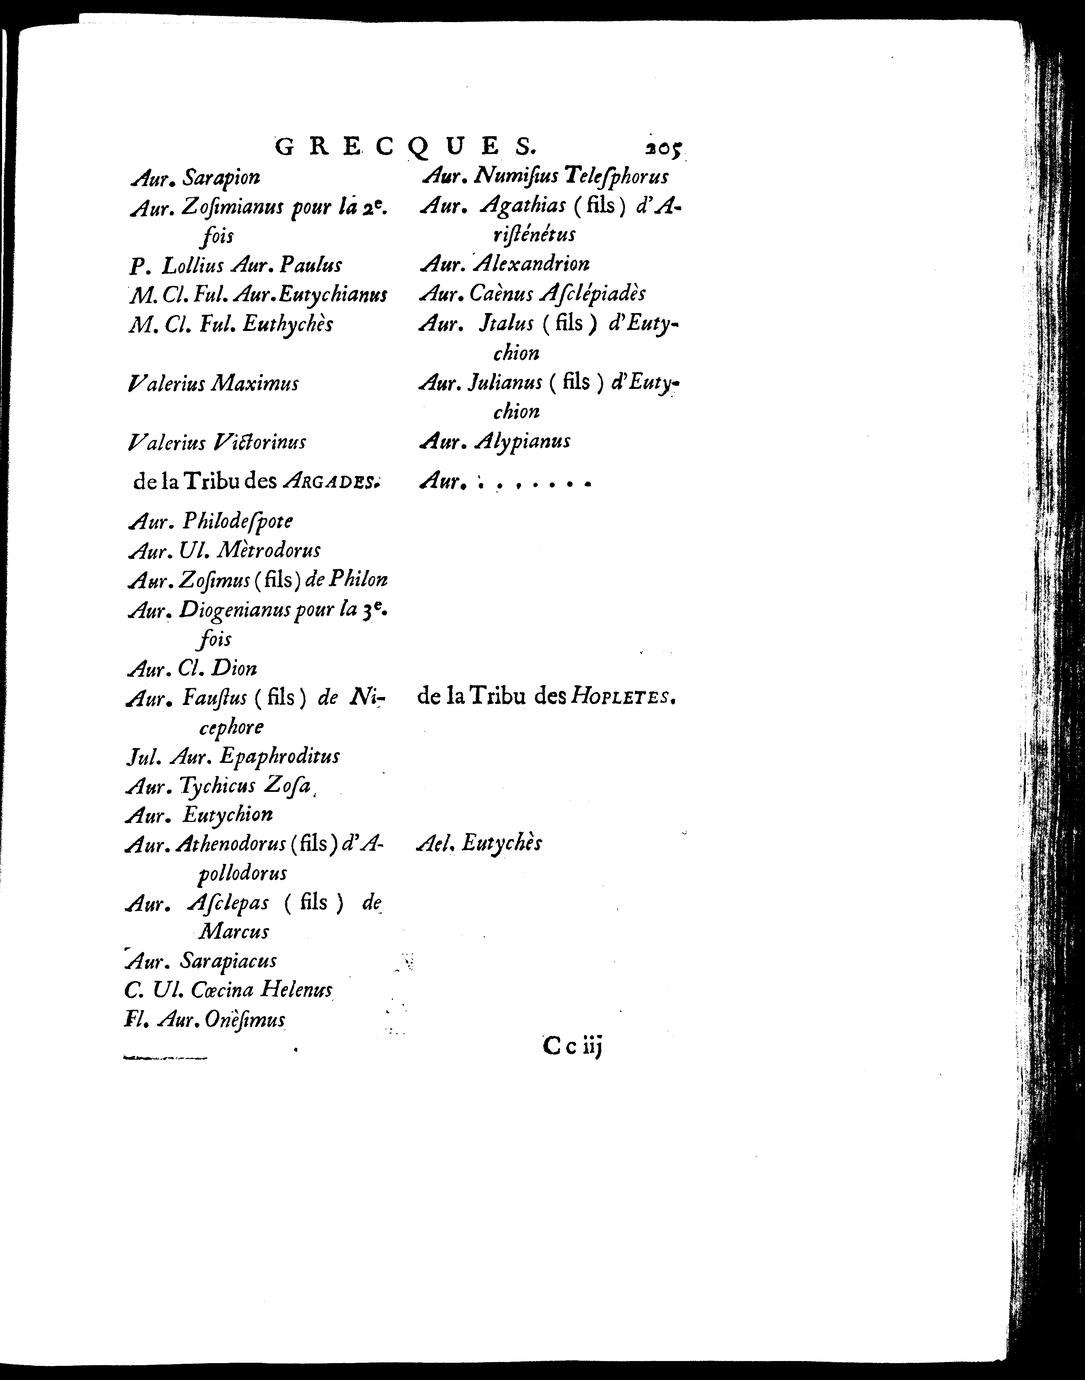 GRECQUES. 205
Aur. Sarapion
Aur. Zoſimianus pour la 2e.
fois
P. Lollius Aur. Paulus
M. Cl. Ful. Aur. Eutychianus
M. Cl. Ful. Euthychès
Valerius Maximus
Valerius Victorinus
de la Tribu des ARGADES.
Aur. Philodeſpote
Aur. Ul. Mètrodorus
Aur. Zoſimus (fils) de Philon
Aur. Diogenianus pour la 3e.
fois
Aur. Cl. Dion
Aur. Fauſtus (fils) de Ni-
cephore
Jul. Aur. Epaphroditus
Aur. Tychicus Zoſa
Aur. Eutychion
Aur. Athenodorus (fils) d'A-
pollodorus
Aur. Aſclepas (fils) de
Marcus
Aur. Sarapiacus
C. Ul. Cœcina Helenus
Fl. Aur. Onèſimus
Aur. Numiſius Teleſphorus
Aur. Agathias (fils) d'A-
riſténétus
Aur. Alexandrion
Aur. Caènus Aſclépiadès
Aur. Jtalus (fils) d'Euty-
chion
Aur. Julianus (fils) d'Euty-
chion
Aur. Alypianus
Aur. . . . . . . .
de la Tribu des HOPLETES.
Ael. Eutychès
Cc iij